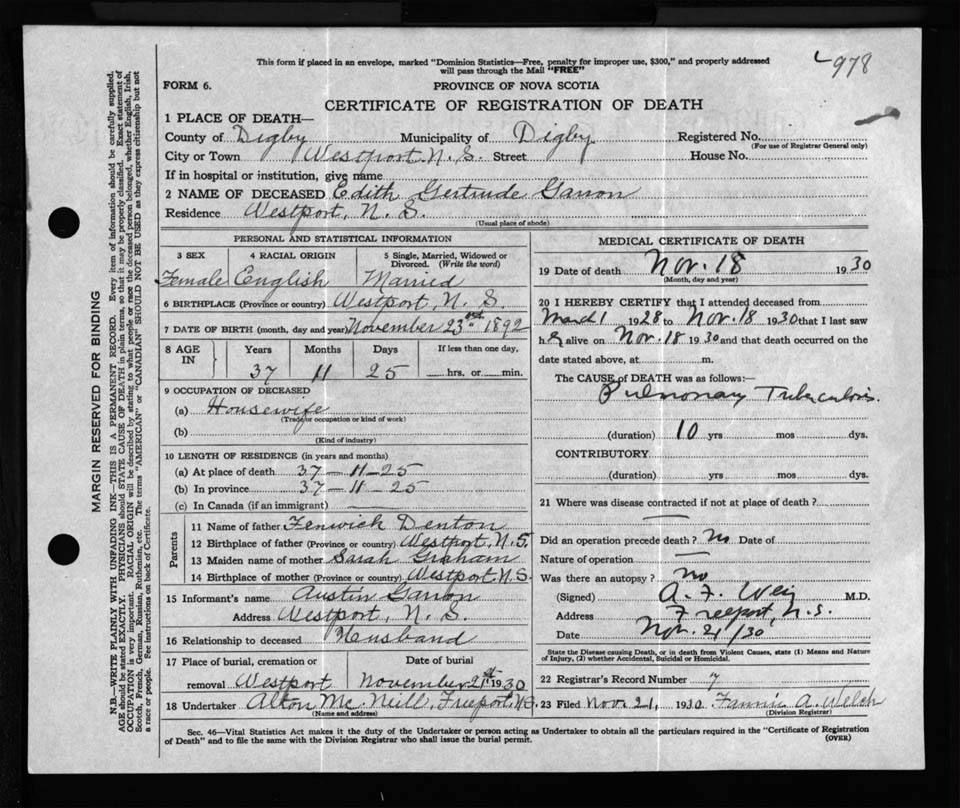 978
This form if placed in an envelope, marked "Dominion Statistics—Free, penalty for improper use, $300," and properly addressed
will pass through the Mail "FREE"
FORM 6.
PROVINCE OF NOVA SCOTIA
CERTIFICATE OF REGISTRATION OF DEATH
1 PLACE OF DEATH—
County of Digby Municipality of Digby Registered No.
(For use of Registrar General only)
City or Town Westport N. S. Street House No.
If in hospital or institution, give name
2 NAME OF DECEASED Edith Gertrude Garron
Residence Westport, N. S.
(Usual place of abode)
PERSONAL AND STATISTICAL INFORMATION
3 SEX 4 RACIAL ORIGIN 5 Single, Married, Widowed or
Divorced. (Write the word)
Female English Married
6 BIRTHPLACE (Province or country) Westport, N. S.
7 DATE OF BIRTH (month, day and year) November 23rd 1892
8 AGE IN Years Months Days If less than one day,
37 11 25 hrs. or min.
9 OCCUPATION OF DECEASED
(a) Housewife
(Trade occupation or kind of work)
(b)
(Kind of industry)
10 LENGTH OF RESIDENCE (in years and months)
(a) At place of death 37—11—25
(b) In province 37—11—25
(c) In Canada (if an immigrant) —
Parents
11 Name of father Fenwick Denton
12 Birthplace of father (Province or country) Westport, N. S.
13 Maiden name of mother Sarah Graham
14 Birthplace of mother (Province or country) Westport N. S.
15 Informant's name Austin Garron
Address Westport, N. S.
16 Relationship to deceased Husband
17 Place of burial, cremation or Date of burial
removal Westport November 21st 1930
18 Undertaker Alton Mc Neill, Freeport, N.S.
(Name and address)
MEDICAL CERTIFICATE OF DEATH
19 Date of death Nov. 18 1930
(Month, day and year)
20 I HEREBY CERTIFY that I attended deceased from
March 1 1928 to Nov. 18 1930 that I last saw
h er alive on Nov. 18 1930 and that death occurred on the
date stated above, at m.
The CAUSE of DEATH was as follows:—
Pulmonary Tuberculosis.
(duration) 10 yrs mos dys.
CONTRIBUTORY
(duration) yrs mos dys.
21 Where was disease contracted if not at place of death?
—
Did an operation precede death? No Date of
Nature of operation —
Was there an autopsy? no
(Signed) A. F. Weir M.D.
Address Freeport, N.S.
Date Nov. 21/30
State the Disease causing Death, or in death from Violent Causes, state (1) Means and Nature
of Injury, (2) whether Accidental, Suicidal or Homicidal.
22 Registrar's Record Number 7
23 Filed Nov. 21, 1930 Fannie A. Welch
(Division Registrar)
Sec. 46—Vital Statistics Act makes it the duty of the Undertaker or person acting as Undertaker to obtain all the particulars required in the "Certificate of Registration
of Death" and to file the same with the Division Registrar who shall issue the burial permit.
(OVER)
MARGIN RESERVED FOR BINDING
N.B.—WRITE PLAINLY WITH UNFADING INK—THIS IS A PERMANENT RECORD. Every item of information should be carefully supplied.
AGE should be stated EXACTLY. PHYSICIANS should STATE CAUSE OF DEATH in plain terms, so that it may be properly classified. Exact statement of
OCCUPATION is very important. RACIAL ORIGIN will be described by stating to what people or race the deceased person belonged, whether English, Irish,
Scotch, French, German, Russian, Ruthenian, etc. The terms "AMERICAN" or "CANADIAN" SHOULD NOT BE USED as they express citizenship but not
a race or people. Fee instructions on back of Certificate.